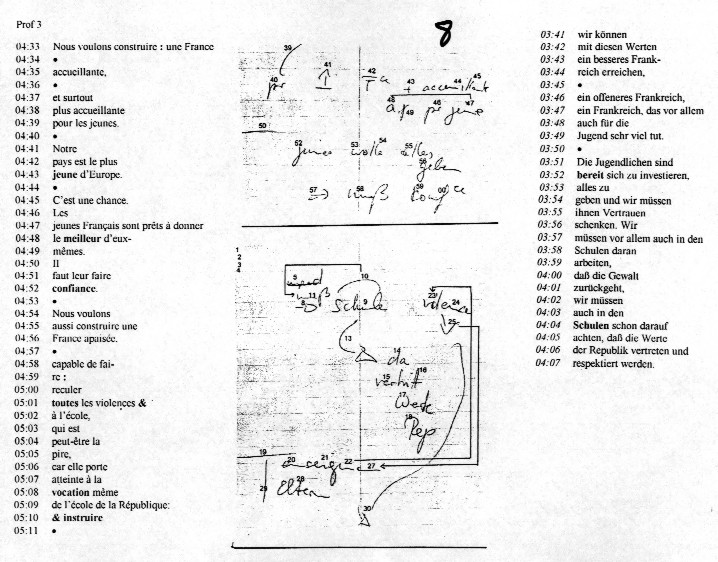 Prof 3
04:33 Nous voulons construire : une France
04:34 •
04:35 accueillante,
04:36 •
04:37 et surtout
04:38 plus accueillante
04:39 pour les jeunes.
04:40 •
04:41 Notre
04:42 pays est le plus
04:43 jeune d'Europe.
04:44 •
04:45 C'est une chance.
04:46 Les
04:47 jeunes Français sont prêts à donner
04:48 le meilleur d'eux-
04:49 mêmes.
04:50 Il
04:51 faut leur faire
04:52 confiance.
04:53 •
04:54 Nous voulons
04:55 aussi construire une
04:56 France apaisée.
04:57 •
04:58 capable de fai-
04:59 re :
05:00 reculer
05:01 toutes les violences &
05:02 à l'école,
05:03 qui est
05:04 peut-être la
05:05 pire,
05:06 car elle porte
05:07 atteinte à la
05:08 vocation même
05:09 de l'école de la République:
05:10 & instruire
05:11 •
8
39
41
40 42 43 44 45
+ accueillant
48 49 46 47
jeune
50
52 53 54 55
jeunes
56
geben
57 58 59 60
muß
1
2
3
4
5 10
11
8 9 23 24
Schule
25
13
14
da
15 16
vertritt
17
Werte
18
Rep
19
20 21 22 27
29 28
Eltern
30
03:41 wir können
03:42 mit diesen Werten
03:43 ein besseres Frank-
03:44 reich erreichen,
03:45 •
03:46 ein offeneres Frankreich,
03:47 ein Frankreich, das vor allem
03:48 auch für die
03:49 Jugend sehr viel tut.
03:50 •
03:51 Die Jugendlichen sind
03:52 bereit sich zu investieren,
03:53 alles zu
03:54 geben und wir müssen
03:55 ihnen Vertrauen
03:56 schenken. Wir
03:57 müssen vor allem auch in den
03:58 Schulen daran
03:59 arbeiten,
04:00 daß die Gewalt
04:01 zurückgeht,
04:02 wir müssen
04:03 auch in den
04:04 Schulen schon darauf
04:05 achten, daß die Werte
04:06 der Republik vertreten und
04:07 respektiert werden.